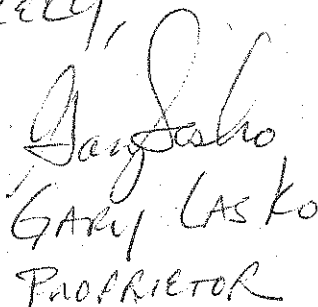 ELY,
Gary Lasko
GARY LASKO
PROPRIETOR